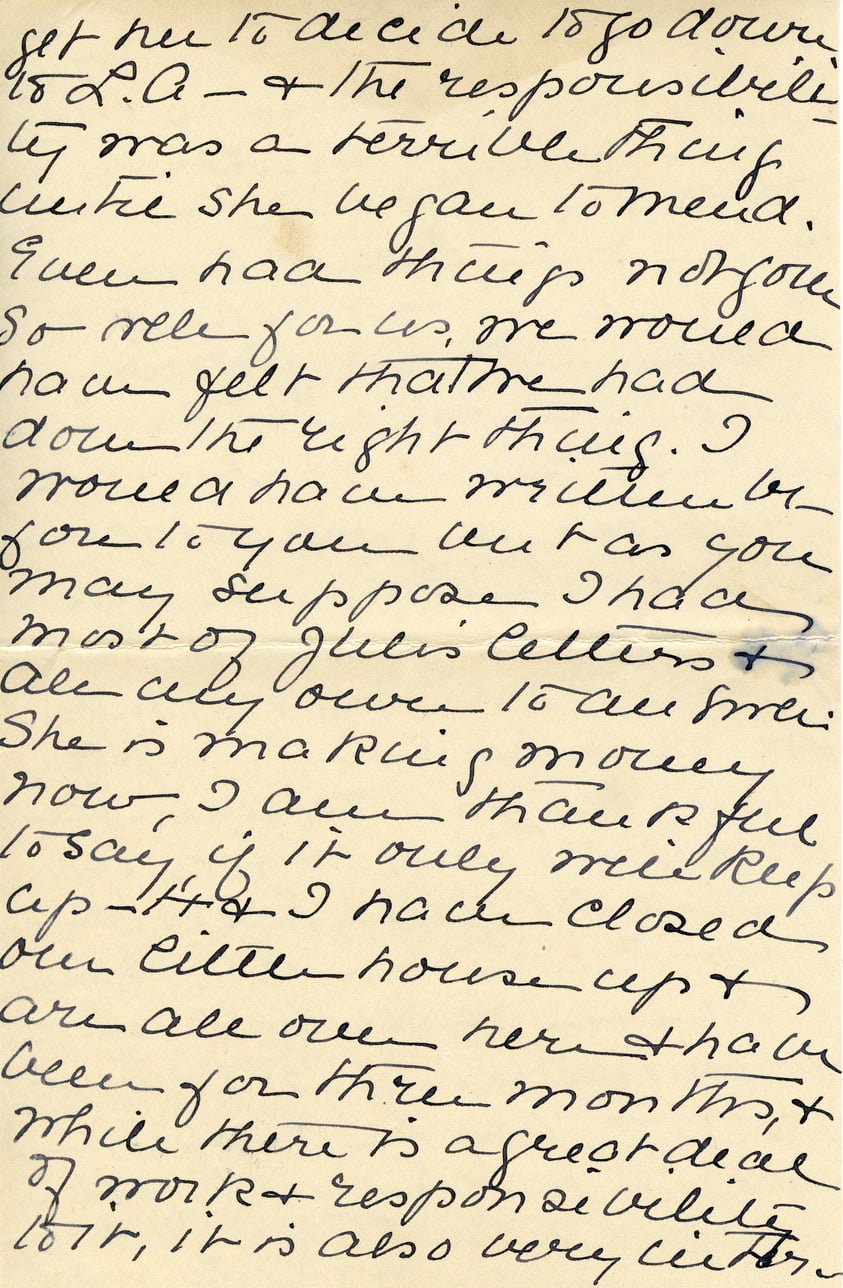 get her to decide to go down
to L.A - & the responsibili-
ty was a terrible thing
until she began to mend.
Even had things not gone
so well for us, we would
have felt that we had
done the right thing. I
would have written be-
fore to you but as you
may suppose I had
most of Juli's letters &
all my own to answer.
She is making money
now, I am thankful
to say, if it only will keep
up - H & I have closed
our little house up &
are all over here & have
been for three months, &
while there is a great deal
of work & responsibility
to it, it is also very inter-